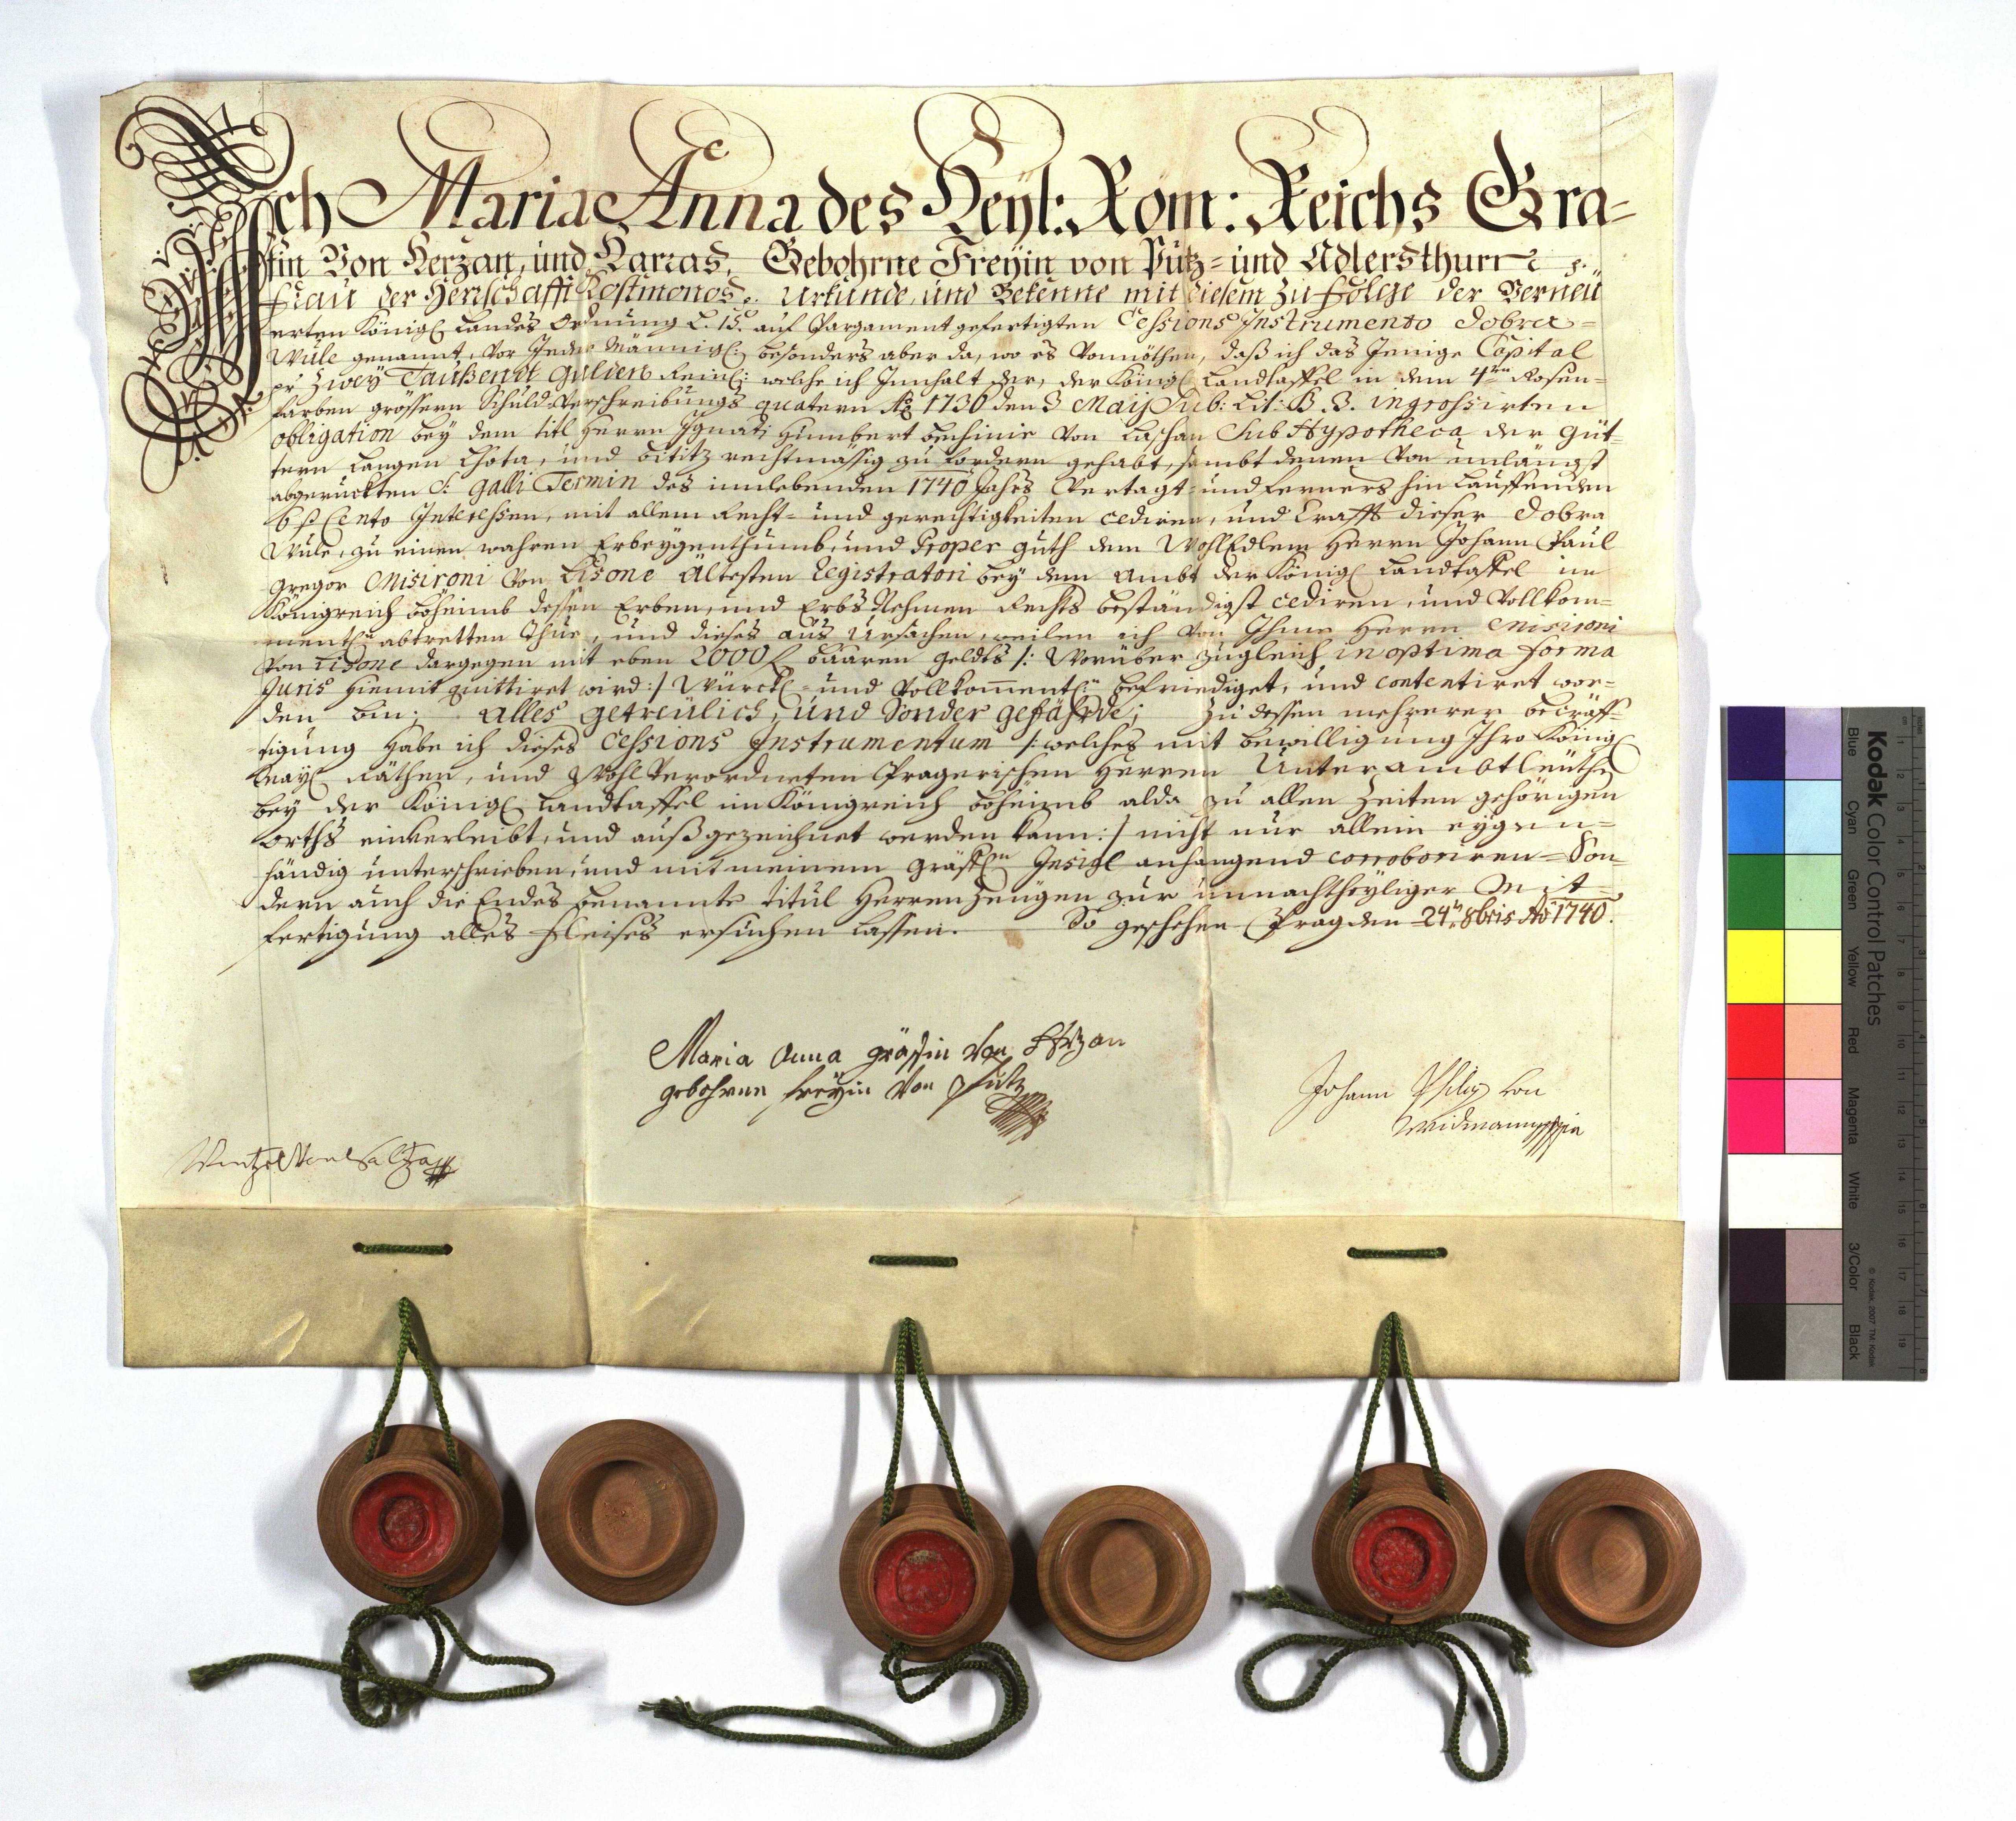 Ich Maria Anna des Heyl: Röm: Reichs Grä-
fin Von Herzan, und Harras, Gebohrne Freyin von Pütz- und Adlersthurn
Frau der Herrschafft Kosmonos. Urkunde, und Bekenne mit diesem zu folge der Verneü
erten Königl Landes Ordnung L. 15. auf Pargament gefertigten Cessions Instrumento Dobra-
Wule genannt, vor Jeder Männigl: besonders aber da, wo es vonnöthen, daß ich das Jenige Capital
pr Zwey Taußendt Gulden Reinl: welche ich Innhalt der, der Königl Landtaffel in dem 4ten Rosen-
farben grössern Schuld Verschreibungs quatern Ao 1730 den 3 Maij Sub: Lit: B. 3. ingrossirten
obligation bey dem titl Herrn Ignati Humbert Bechinie von Laschan Sub Hypotheca der Güt-
tern Langen Lhota, und bititz rechtmässig zu fordern gehabt, sambt denen von unlängst
abgeruckten S. Galli Termin des innlebenden 1740 Jahrs Vertagt- und ferners hin Lauffenden
6 p Cento Interessen, mit allem Recht- und gerechtigkeiten cediren, und Crafft dieser Dobra
Wule, zu einen wahren Erbeygenthumb, und Proper guth dem WohlEdlem Herrn Johann Paul
Gregor Misironi von Lisone Altesten Registratori bey dem Ambt der Königl Landtaffel im
Königreich Böheimb dessen Erben, und Erbs Nehmen Rechts beständigst cediren, und Vollkom-
mentl: abtretten thue, und dieses aus Ursachen, weilen ich von Ihme Herrn Misironi
von Lisone dargegen mit eben 2000 f baaren geldts /: Worüber zugleich in optima forma
Juris hiemit quittiret wird :/ Würckl- und Vollkomentl: befriediget, und contentiret wor-
den bin; alles getreulich, und Sonder gefährde; Zu dessen mehrerer bekräff-
tigung habe ich dieses Cessions Instrumentum /: welches mit bewilligung Ihro Königl
May: Räthen, und Wohl Verordneten Pragerischen Herren Unterambtleüthe
bey der Königl Landtaffel im Königreich Böheimb alda zu allen Zeiten gehörigen
orths einverleibt, und außgezeichnet werden kann :/ nicht nur allein eygen-
händig unterschrieben, und mit meinem gräfl:n Insigl anhangend corroboriren- Son-
dern auch die Endes benannte titul Herren Zeugen zur unnachtheyliger Mit-
fertigung alles fleises ersuchen lassen. So geschehen Prag den 24n 8bris Ao 1740.
Maria Anna gräffin von Herzan
gebohrne freyin von Pütz
Johann Philip von
Widmann
Wentzel
Kodak Color Control Patches
Blue Cyan Green Yellow Red Magenta White 3/Color Black
© Kodak, 2007 TM: Kodak